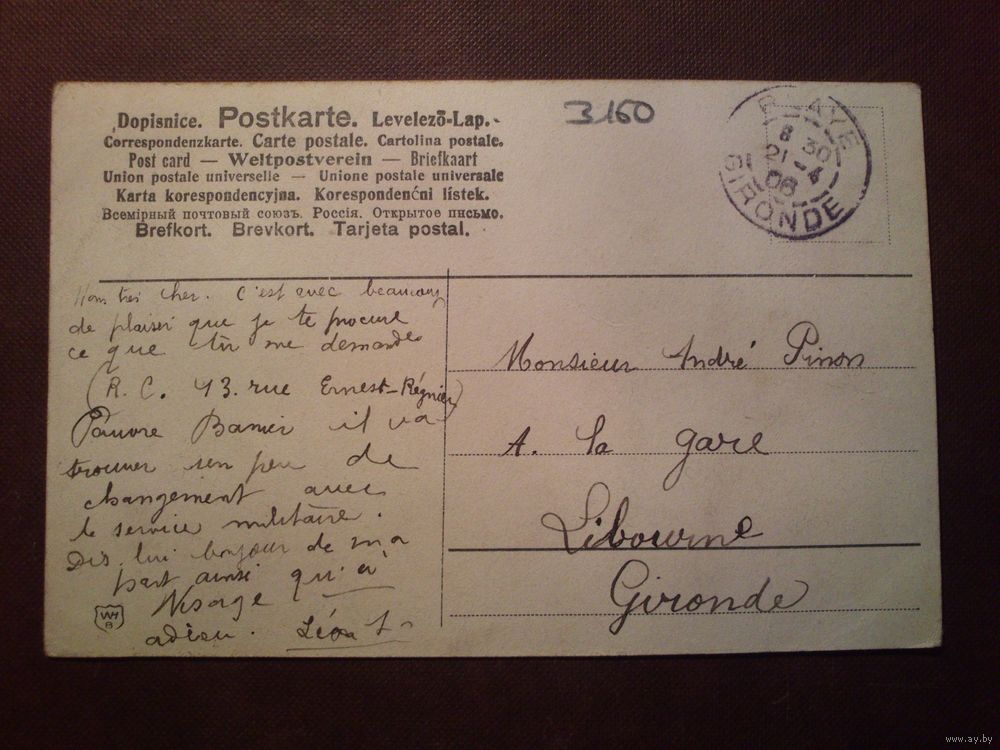 Dopisnice. Postkarte. Levelező-Lap.
Correspondenzkarte. Carte postale. Cartolina postale.
Post card — Weltpostverein — Briefkaart
Union postale universelle — Unione postale universale
Karta korespondencyjna. Korespondenční lístek.
Всемірный почтовый союзъ. Россія. Открытое письмо.
Brefkort. Brevkort. Tarjeta postal.
3160
BLAYE
8 30
21 - 4
06
GIRONDE
Mon très cher. C'est avec beaucoup
de plaisir que je te procure
ce que tu me demandes
(R. C. 43. rue Ernest-Régnier)
Pauvre Banier il va
trouver un peu de
changement avec
le service militaire.
Dis lui bonjour de ma
part ainsi qu'à
Nisorge
adieu. Léon
WH
B
Monsieur André Pinson
A. la gare
Libourne
Gironde
www.ay.by